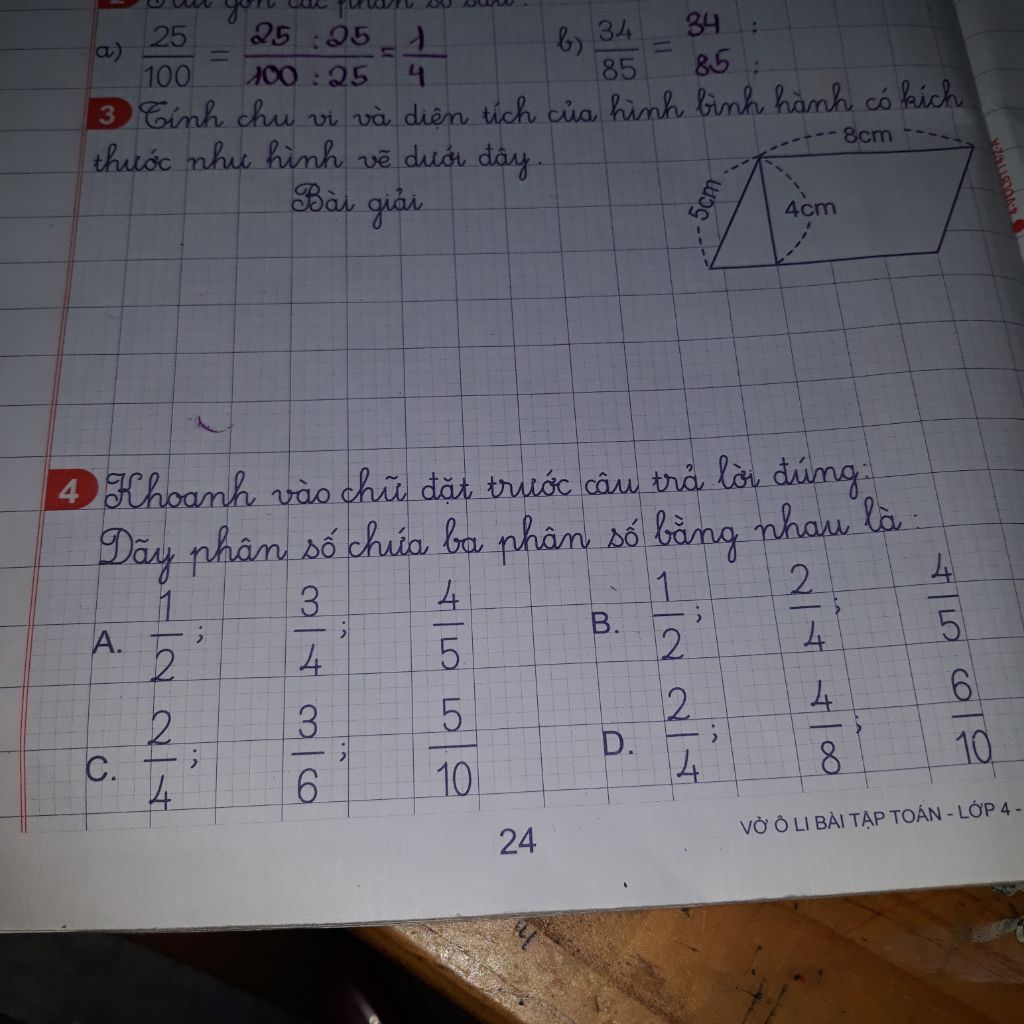 2 Rút gọn các phân số sau:
a) 25/100 = 25 : 25/100 : 25 = 1/4 b) 34/85 = 34 :/85 :
3 Tính chu vi và diện tích của hình bình hành có kích
thước như hình vẽ dưới đây.
8cm
5cm
4cm
Bài giải
4 Khoanh vào chữ đặt trước câu trả lời đúng:
Dãy phân số chứa ba phân số bằng nhau là:
A. 1/2; 3/4; 4/5 B. 1/2; 2/4; 4/5
C. 2/4; 3/6; 5/10 D. 2/4; 4/8; 6/10
24
VỞ Ô LI BÀI TẬP TOÁN - LỚP 4 -